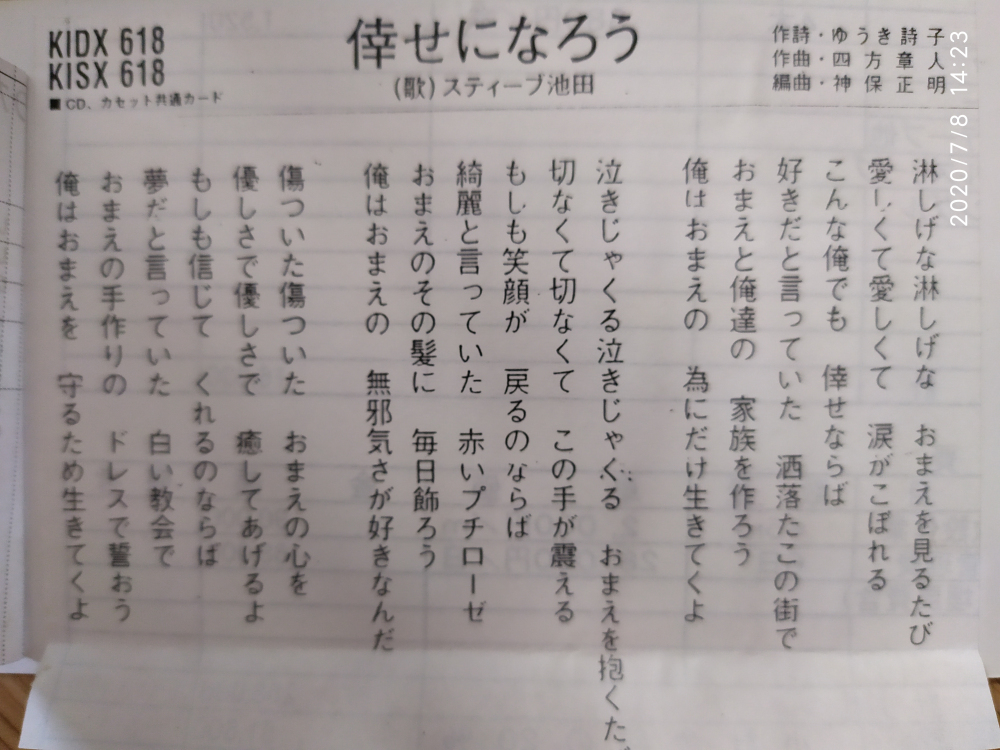 KIDX 618
KISX 618
■CD、カセット共通カード
倖せになろう
(歌)スティーブ池田
作詩・ゆうき詩子
作曲・四方章人
編曲・神保正明
2020/7/8 14:23
淋しげな淋しげな　おまえを見るたび
愛しくて愛しくて　涙がこぼれる
こんな俺でも　倖せならば
好きだと言っていた　洒落たこの街で
おまえと俺達の　家族を作ろう
俺はおまえの　為にだけ生きてくよ
泣きじゃくる泣きじゃくる　おまえを抱くた
切なくて切なくて　この手が震える
もしも笑顔が　戻るのならば
綺麗と言っていた　赤いプチローゼ
おまえのその髪に　毎日飾ろう
俺はおまえの　無邪気さが好きなんだ
傷ついた傷ついた　おまえの心を
優しさで優しさで　癒してあげるよ
もしも信じて　くれるのならば
夢だと言っていた　白い教会で
おまえの手作りの　ドレスで誓おう
俺はおまえを　守るため生きてくよ